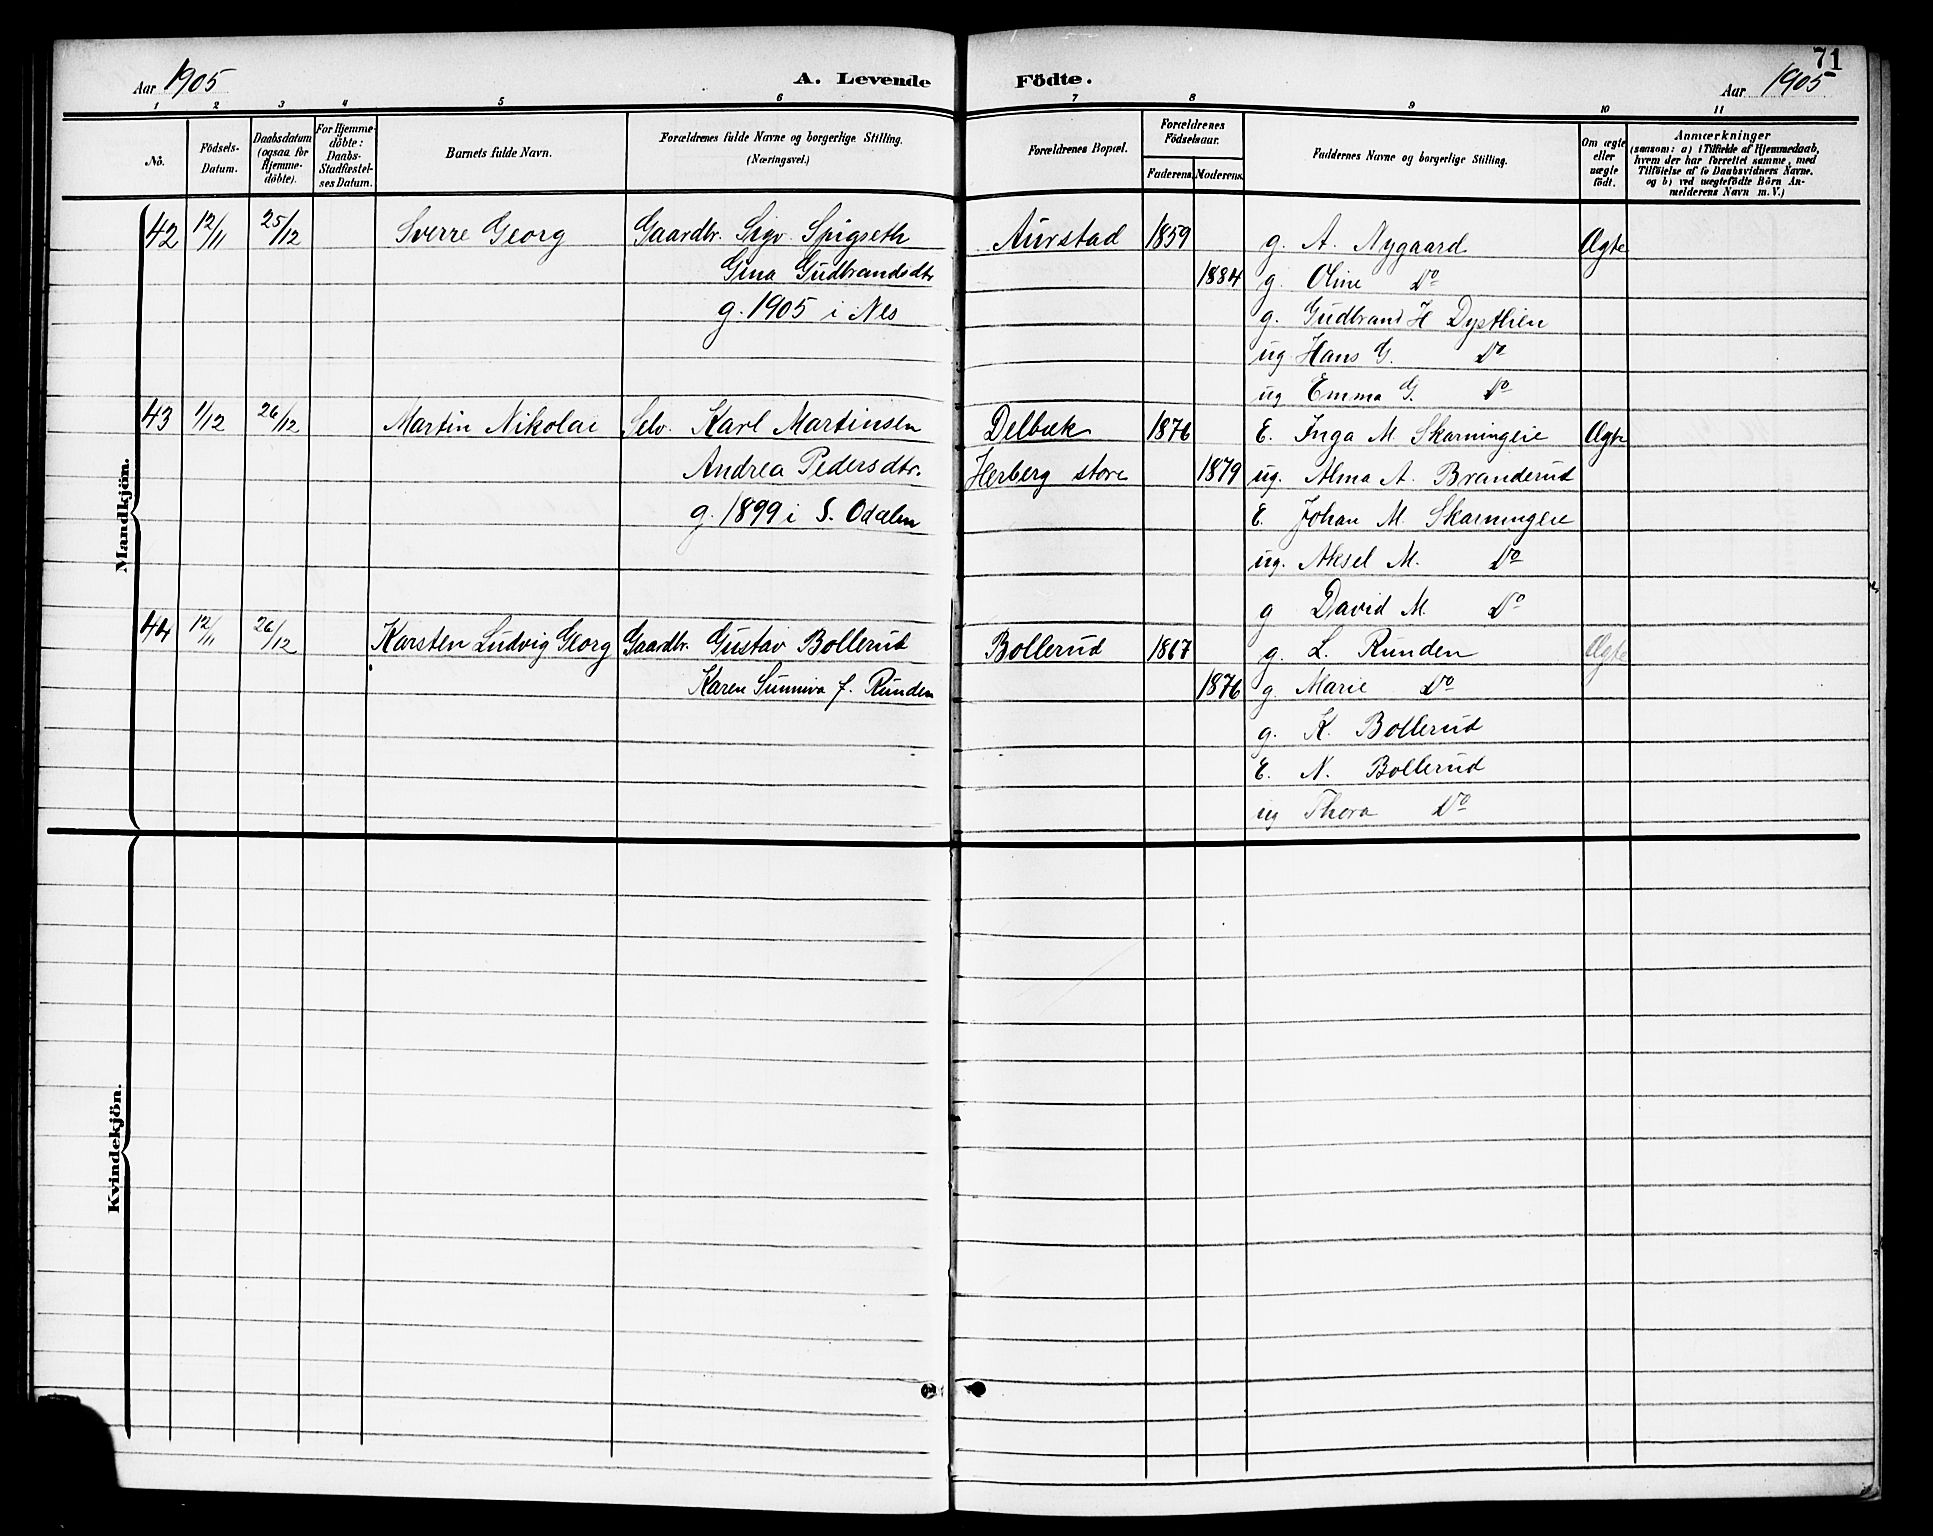 71
Aar 1905 A. Levende Födte. Aar 1905
1 2 3 4 5 6 7 8 9 10 11
Nö.
Födsels-Datum.
Daabsdatum (ogsaa for Hjemme-döbte).
For Hjemme-döbte: Daabs-Stadfæstel-ses Datum.
Barnets fulde Navn.
Forældrenes fulde Navne og borgerlige Stilling. (Næringsvei.)
Forældrenes Bopæl.
Forældrenes Födselsaar.
Faderens. Moderens.
Faddernes Navne og borgerlige Stilling.
Om ægte eller uægte födt.
Anmærkninger
(saasom: a) i Tilfælde af Hjemmedaab, hvem der har forrettet samme, med Tilföielse af to Daabsvidners Navne. og b) ved uægtefödte Börn An-melderens Navn m. V.)
Mandkjön.
42 12/11 25/12 Sverre Georg Gaardbr. Sigv. Spigseth Aurstad 1859 g. A. Nygaard Ægte
Gina Gudbrandsdtr 1884 g. Oline Do
g. 1905 i Nes g. Gudbrand H Dysthien
ug. Hans G. Do
ug Emma G. Do
43 1/12 26/12 Martin Nikolai Selv. Karl Martinsen Delbæk 1876 E. Inga M. Skarningeie Ægte
Andrea Pedersdtr. Herberg store 1879 ug. Alma A. Branderud
g. 1899 i S. Odalen E. Johan M. Skarningeie
ug. Aksel M. Do
g David M. Do
44 12/11 26/12 Karsten Ludvig Georg Gaardbr. Gustav Bollerud Bollerud 1867 g. L. Runden Ægte
Karen Sunniva f. Runden 1876 g. Marie Do
g. K. Bollerud
E. N. Bollerud
ug Thora Do
Kvindekjön.